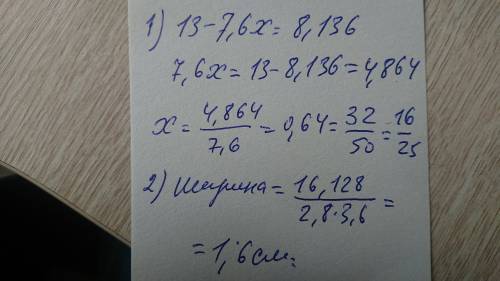 1) 13-7,6x=8,136
7,6x=13-8,136=4,864
x=4,864/7,6=0,64=32/50=16/25
2) Ширина=16,128/2,8·3,6=
=1,6см.